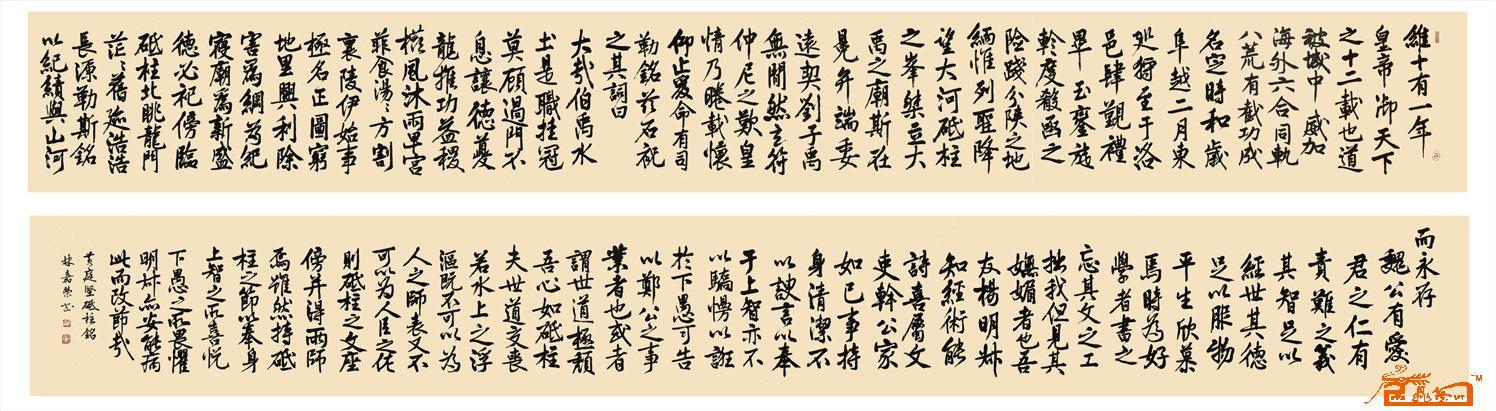 維十有一年
皇帝御天下
之十二載也道
被域中威加
海外六合同軌
八荒有截功成
名定時和歲
阜越二月東
巡狩至于洛
邑肆觀禮
畢玉鑾旋
軫度殽函之
險踐分陝之地
緬惟列聖降
望大河砥柱
之峯桀立大
禹之廟斯在
晃弁端委
遠契劉子禹
無間然主符
仲尼之歎皇
情乃睠載懷
仰止爰命有司
勒銘茲石祝
之其詞曰
大哉伯禹水
土是職挂冠
莫顧過門不
息讓德夔
龍推功益稷
櫛風沐雨卑宮
菲食湯湯方割
襄陵伊始事
極名正圖窮
地里興利除
害爲綱爲紀
寢廟爲新盛
德必祀傍臨
砥柱北眺龍門
茫茫舊跡浩浩
長源勒斯銘
以紀績與山河
而永存
魏公有愛
君之仁有
責難之義
其智足以
經世其德
足以服物
平生欣慕
焉時為好
學者書之
忘其文之工
拙我但見其
嫵媚者也吾
友楊明叔
知經術能
詩喜屬文
吏幹公家
如己事持
身清潔不
以諛言以奉
于上智亦不
以驕慢以誑
於下愚可告
以鄭公之事
業者也或者
謂世道極頹
吾心如砥柱
夫世道交喪
若水上之浮
漚既不可以為
人之師表又不
可以為人臣之佐
則砥柱之文座
傍并得兩師
焉雖然持砥
柱之節以奉身
上智之所喜悅
下愚之所畏懼
明叔亦安能病
此而改節哉
黃庭堅砥柱銘
林嘉榮書
TM